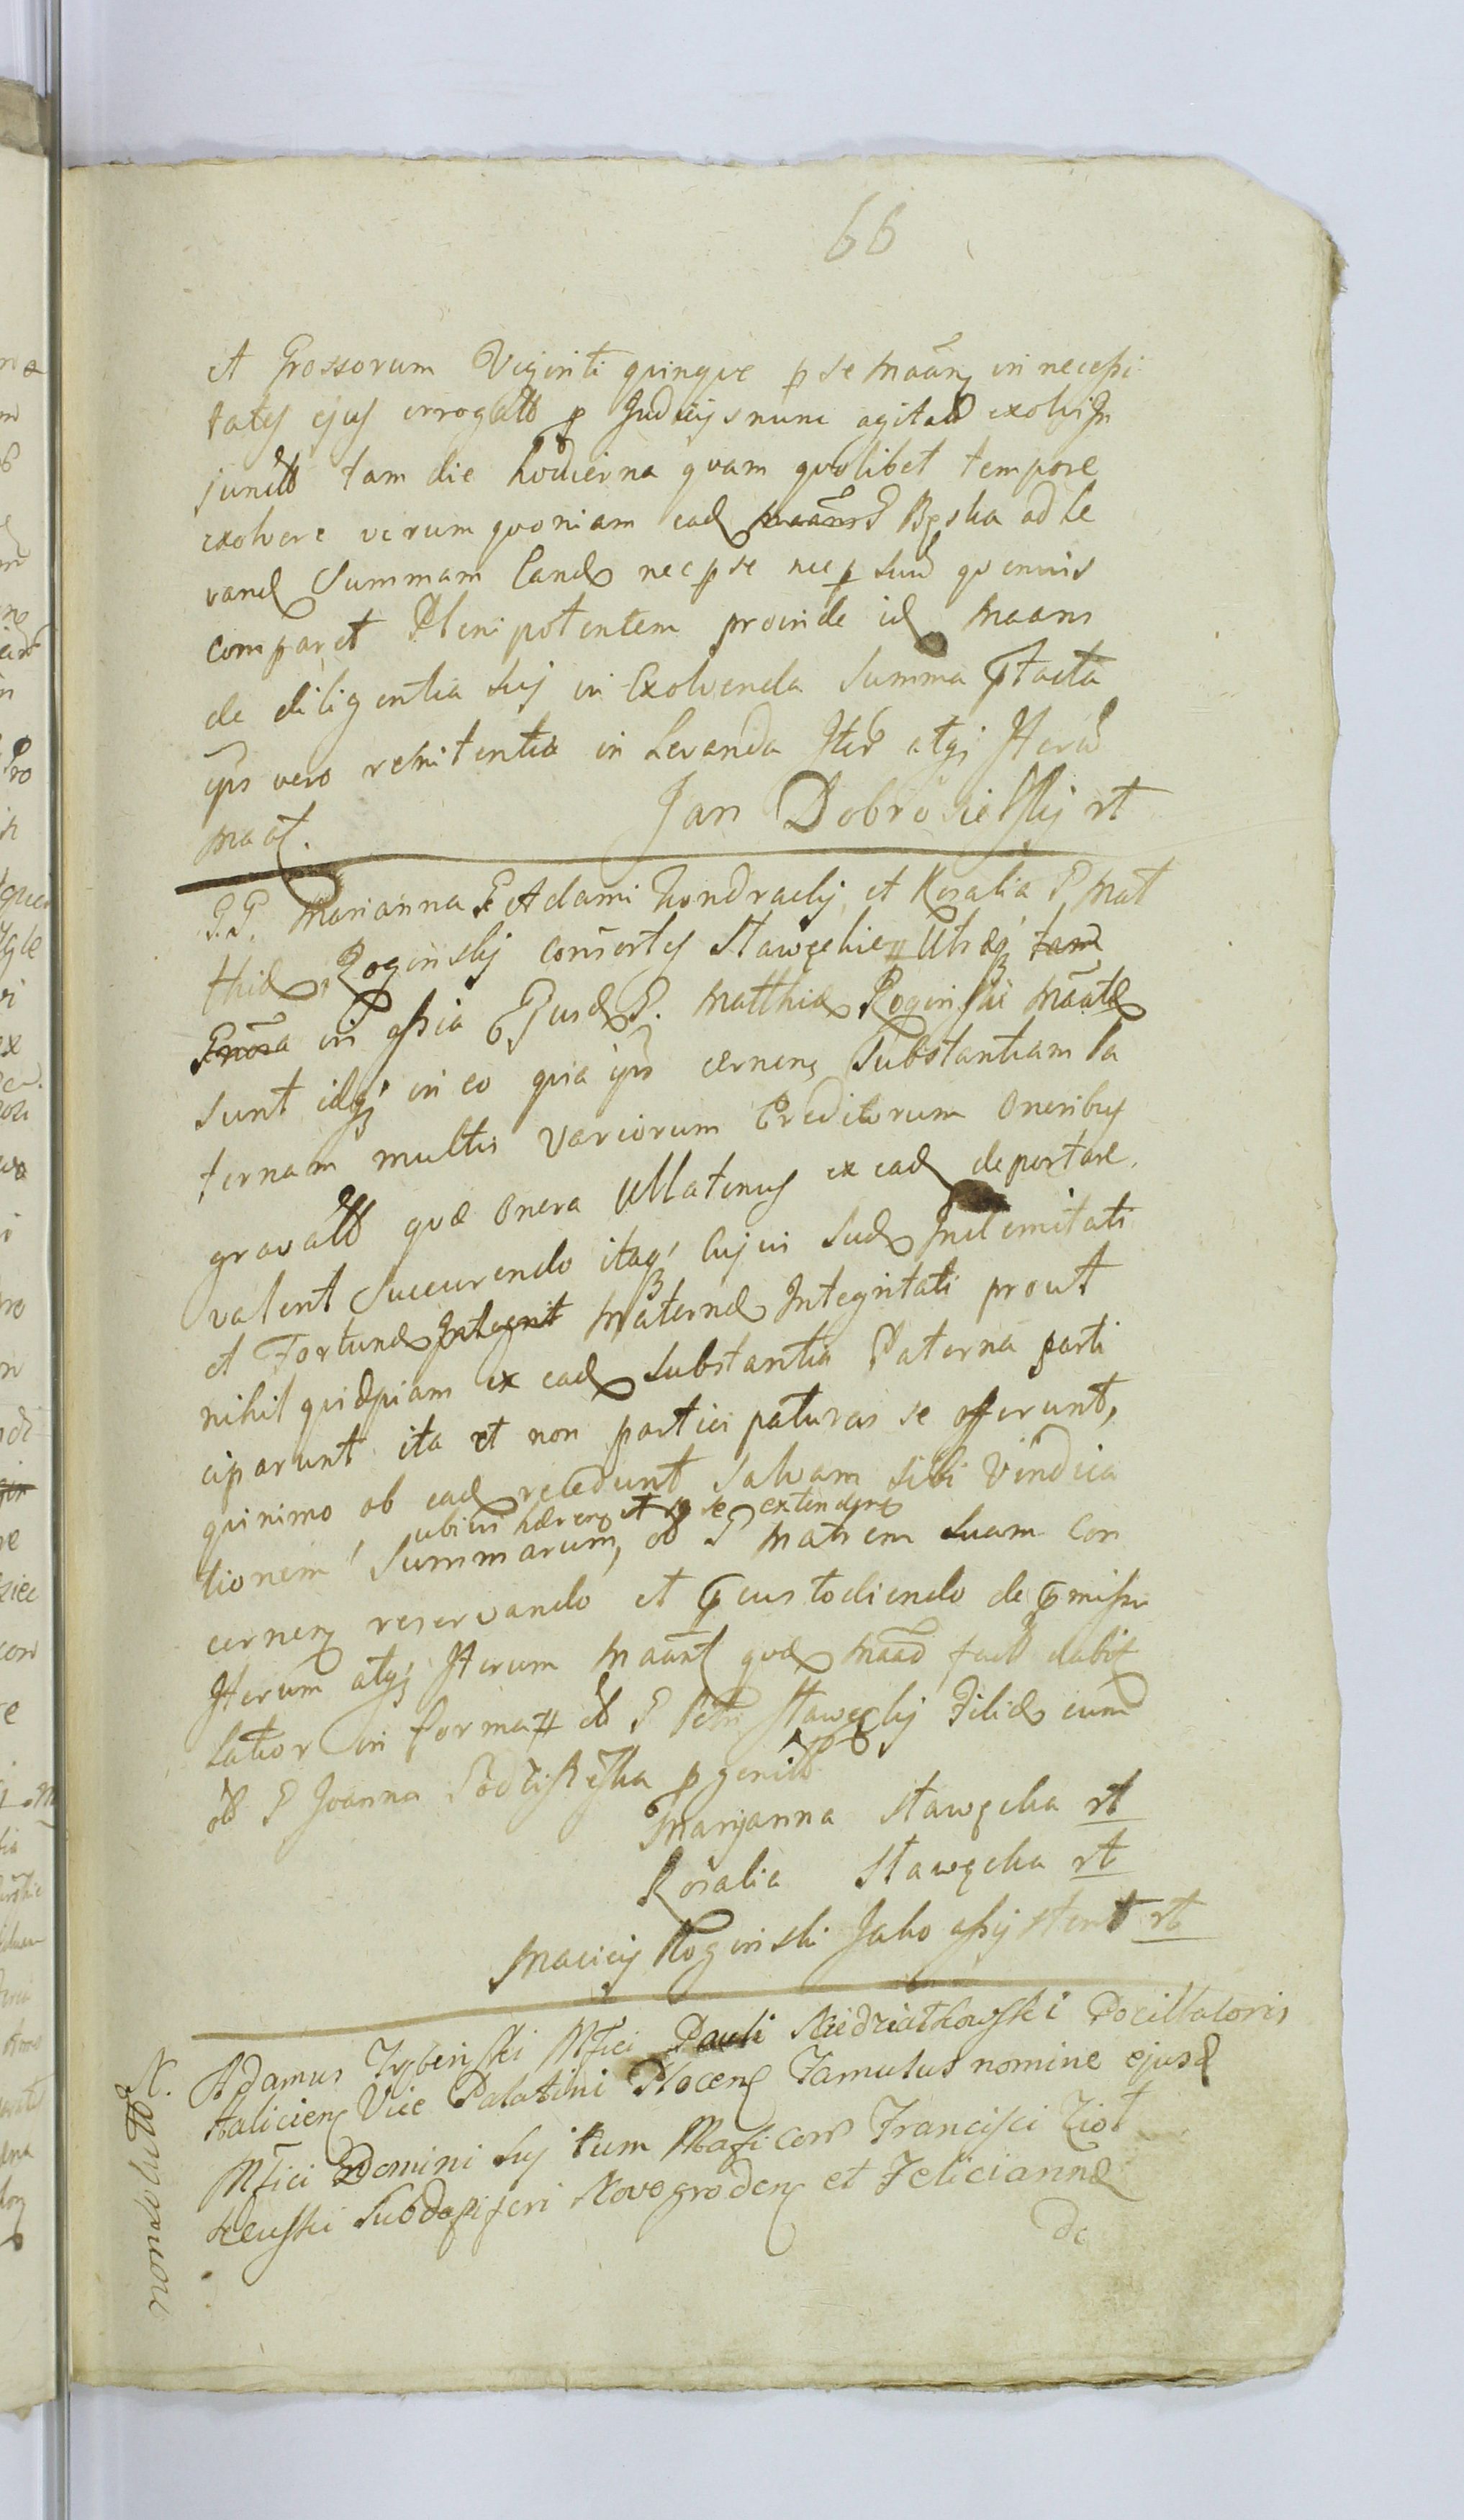 66
et Grossorum Viginti quinque p se maãn in necessi
tates ejus erogatt p Judicijs nunc agitatt exolvi In
junctt tam die hodierna quam quolibet tempore
exolvere verum quoniam ead Bęska ad le
vand Summam Eand nec p se nec p suũ quemvis
comparet Plenipotentem proinde id maans
de diligentia suj in Exolvenda Summa ptacta
ips vero renitentia in Levanda Iter atq Iterũ
maat.
Jan Dobrosielskj rt
P.P. Marianna P. Adami Kondrackj et Rosalia P. Mat
thiæ Roginskj consortes Stawęckie Utræq tam
in assia Ejusd P. Matthiæ Roginski maatæ
sunt idq in eo quia ips cernen Substantiam Pa
ternam multis variorum Creditorum Oneribus
gravatt quæ onera Ullatenus ex ead deportare
valent Succurendo itaq cujvis suæ Indemitati
et Fortunæ Integrit Maternæ Integritati prout
nihil quidpiam ex ead substantia Paterna parti
ciparunt ita et non participaturas se offerunt,
quinimo ob ead recedunt Salvam sibi Vindica
ubivis hæren et se extenden
tionem Summarum, ob P Matrem suam con
cernen reservando et pcustodiendo de pmissis
Iterum atq Iterum maant quæ maaõ fact dabit
Latior in forma # ol P Petri Stawęckj Filiæ cum
ol P Joanna p genitt
Maryanna Stawęcka rt
Rosalia Stawęcka rt
Maciej Roginski Jako assystent rt
N. Adamus Trzbinski Mfici Pauli Niedzialkowski Pocillatoris
Haliciens Vice Palatini Plocens Famulus nomine ejusd
Mfici Domini suj tum Maficorũ Francisci Ziot
keuski Subdapiferi Novogroden et Feliciannæ
de
non solutt